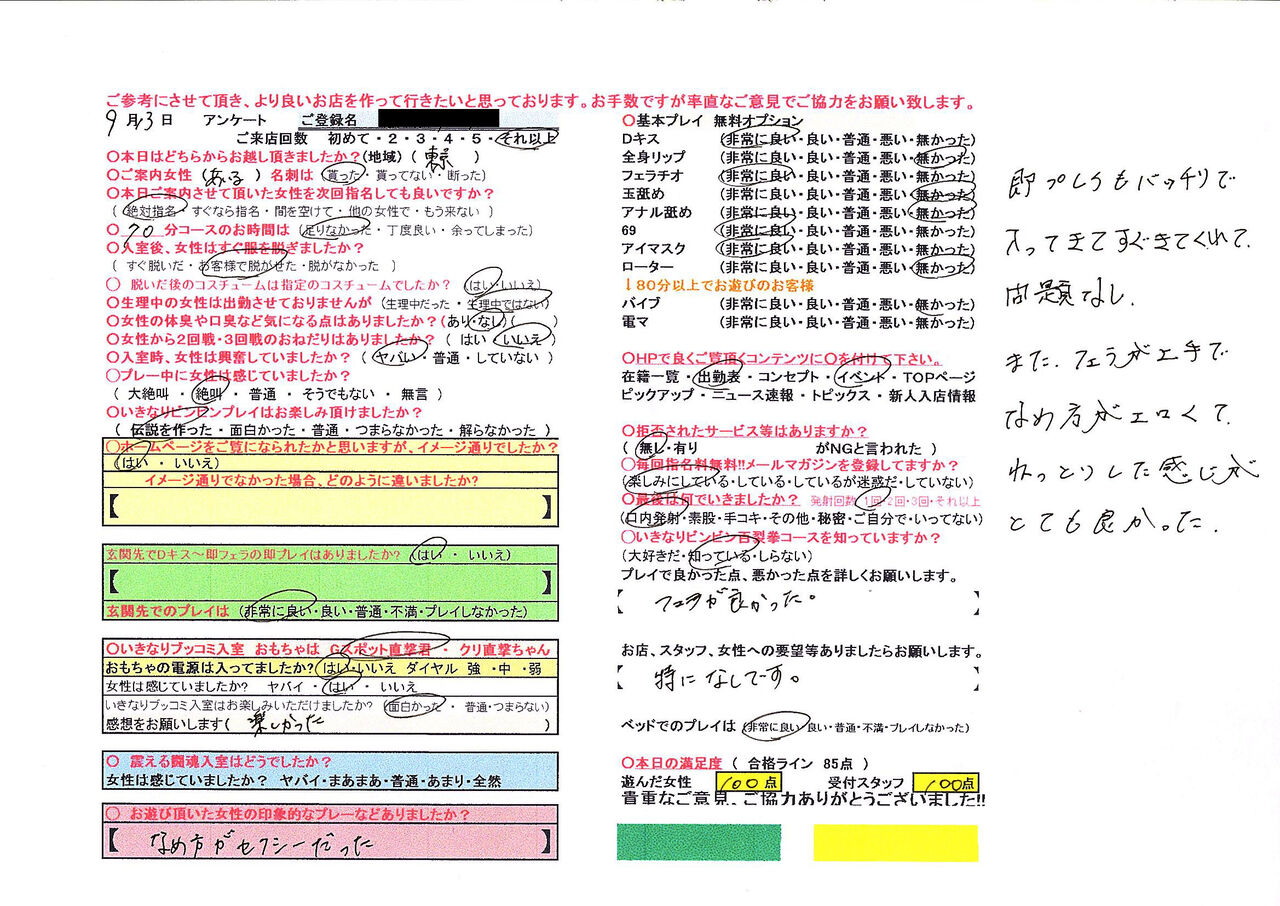 ご参考にさせて頂き、より良いお店を作って行きたいと思っております。お手数ですが率直なご意見でご協力をお願い致します。
9月13日 アンケート ご登録名
ご来店回数 初めて・2・3・4・5・それ以上
〇本日はどちらからお越し頂きましたか?(地域) ( 東京 )
〇ご案内女性 (ある) 名刺は (貰った・貰ってない・断った)
〇本日ご案内させて頂いた女性を次回指名しても良いですか?
( 絶対指名・すぐなら指名・間を空けて・他の女性で・もう来ない )
〇 70 分コースのお時間は (足りなかった・丁度良い・余ってしまった)
〇入室後、女性はすぐ服を脱ぎましたか?
( すぐ脱いだ・お客様で脱がせた・脱がなかった )
〇 脱いだ後のコスチュームは指定のコスチュームでしたか? (はい・いいえ)
〇生理中の女性は出勤させておりませんが (生理中だった・生理中ではない)
〇女性の体臭や口臭など気になる点はありましたか?(あり・なし)( )
〇女性から2回戦・3回戦のおねだりはありましたか? ( はい・いいえ )
〇入室時、女性は興奮していましたか? ( ヤバい・普通・していない )
〇プレー中に女性は感じていましたか?
( 大絶叫 ・ 絶叫 ・ 普通 ・ そうでもない ・ 無言 )
〇いきなりビンビンプレイはお楽しみ頂けましたか?
( 伝説を作った・面白かった・普通・つまらなかった・解らなかった )
〇ホームページをご覧になられたかと思いますが、イメージ通りでしたか?
(はい ・ いいえ)
イメージ通りでなかった場合、どのように違いましたか?
【 】
玄関先でDキス～即フェラの即プレイはありましたか? (はい ・ いいえ)
【 】
玄関先でのプレイは (非常に良い・良い・普通・不満・プレイしなかった)
〇いきなりブッコミ入室 おもちゃは Gスポット直撃君 ・ クリ直撃ちゃん
おもちゃの電源は入ってましたか? はい・いいえ ダイヤル 強 ・中 ・弱
女性は感じていましたか? ヤバイ・はい・いいえ
いきなりブッコミ入室はお楽しみいただけましたか? (面白かった ・ 普通・つまらない)
感想をお願いします( 楽しかった )
〇 震える闘魂入室はどうでしたか?
女性は感じていましたか? ヤバイ・まあまあ・普通・あまり・全然
〇 お遊び頂いた女性の印象的なプレーなどありましたか?
【 なめ方がセクシーだった 】
〇基本プレイ 無料オプション
Dキス (非常に良い・良い・普通・悪い・無かった)
全身リップ (非常に良い・良い・普通・悪い・無かった)
フェラチオ (非常に良い・良い・普通・悪い・無かった)
玉舐め (非常に良い・良い・普通・悪い・無かった)
アナル舐め (非常に良い・良い・普通・悪い・無かった)
69 (非常に良い・良い・普通・悪い・無かった)
アイマスク (非常に良い・良い・普通・悪い・無かった)
ローター (非常に良い・良い・普通・悪い・無かった)
↓80分以上でお遊びのお客様
バイブ (非常に良い・良い・普通・悪い・無かった)
電マ (非常に良い・良い・普通・悪い・無かった)
〇HPで良くご覧頂くコンテンツに〇を付けて下さい。
在籍一覧・出勤表・コンセプト・イベント・TOPページ
ピックアップ・ニュース速報・トピックス・新人入店情報
〇拒否されたサービス等はありますか?
( 無し・有り がNGと言われた )
〇毎回指名料無料!!メールマガジンを登録してますか?
(楽しみにしている・している・しているが迷惑だ・していない)
〇最後は何でいきましたか? 発射回数 1回・2回・3回・それ以上
(口内発射・素股・手コキ・その他・秘密・ご自分で・いってない)
〇いきなりビンビン百裂拳コースを知っていますか?
(大好きだ・知っている・しらない)
プレイで良かった点、悪かった点を詳しくお願いします。
フェラが良かった。
お店、スタッフ、女性への要望等ありましたらお願いします。
特になしです。
ベッドでのプレイは (非常に良い・良い・普通・不満・プレイしなかった)
〇本日の満足度 ( 合格ライン 85点 )
遊んだ女性 100点 受付スタッフ 100点
貴重なご意見、ご協力ありがとうございました!!
即プレイもバッチリで
入ってきてすぐきてくれて、
問題なし.
また、フェラが上手で
なめ方がエロくて、
ねっとりした感じが
とても良かった.